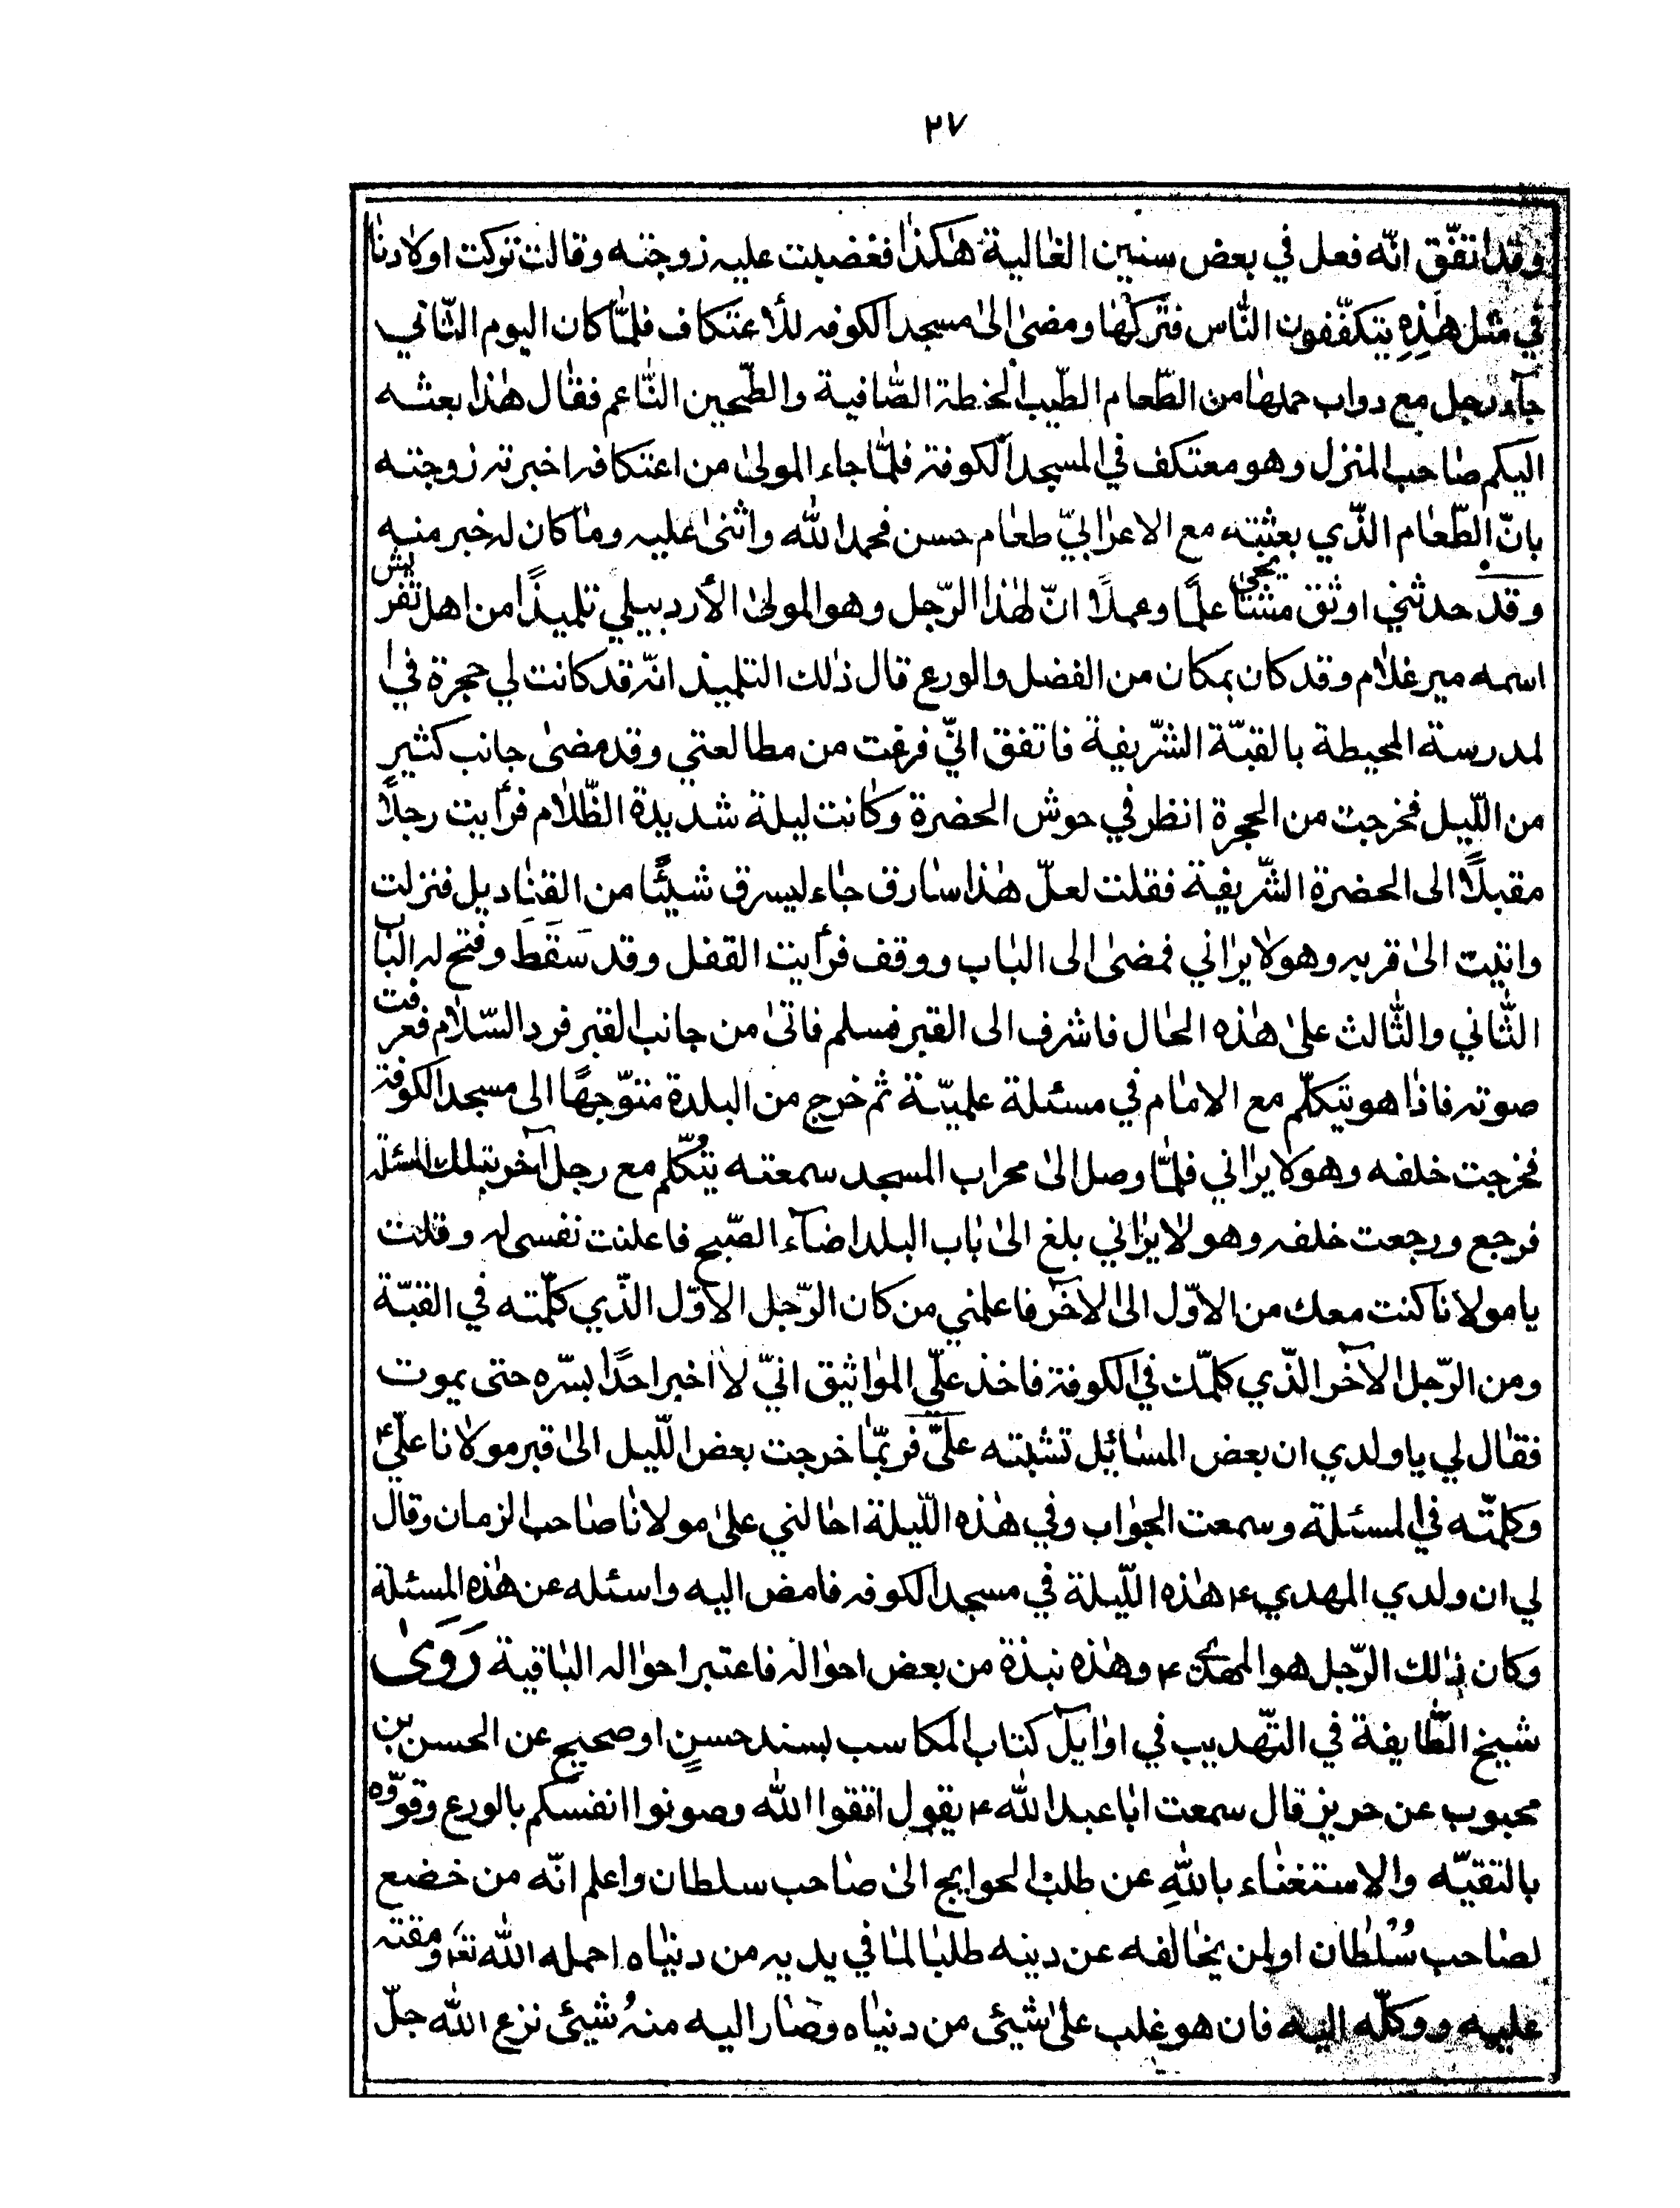 ٢٧
وقد اتفّق انّه فعل في بعض سنين الغالية هٰكذا فغضبت عليه زوجته وقالت تركت اولادنا
في مثل هٰذِهِ يتكفّفون النّاس فتركها ومضىٰ الىٰ مسجد الكوفه للأعتكاف فلمّا كان اليوم الثّاني
جآء رجل مع دواب حملها من الطّعام الطّيب الحنطة الصّافية والطّحين النّاعم فقال هٰذا بعثه
اليكم صاحب المنزل وهو معتكف في المسجد الكوفة فلمّا جاء المولىٰ من اعتكافه اخبرته زوجته
بانّ الطّعام الذّي بعثته مع الاعرابيّ طعام حسن فحمد اللّه واثنىٰ عليه وما كان له خبر منه
وقد حدثني اوثق مشايخي علمًا وعملًا انّ لهٰذا الرّجل وهو المولىٰ الأردبيلي تلميذًا من اهل تفريش
اسمه مير غلام وقد كان بمكان من الفضل والورع قال ذٰلك التلميذ انّه قد كانت لي حجرة في ا
لمدرسة المحيطة بالقبّة الشّريفية فاتفق انيّ فرغت من مطالعتي وقد مضىٰ جانب كثير
من اللّيل فخرجت من الحجرة انظر في حوش الحضرة وكانت ليلة شديدة الظّلام فرأيت رجلًا
مقبلًا الى الحضرة الشّريفية فقلت لعلّ هٰذا سارق جاء ليسرق شيئًا من القناديل فنزلت
واتيت الىٰ قربه وهو لا يراني فمضىٰ الى الباب ووقف فرأيت القفل وقد سَقَطَ وفتح له الباب
الثّاني والثّالث علىٰ هٰذه الحال فاشرف الى القبر فسلم فاتىٰ من جانب القبر فرد السّلام فعرفت
صوته فاذا هو تيكلّم مع الامام في مسئلة علميّة ثم خرج من البلدة متوّجهًا الى مسجد الكوفة
فخرجت خلفه وهو لا يراني فلمّا وصل الىٰ محراب المسجد سمعته يتُكلّم مع رجل آخر بتلك المسئلة
فرجع ورجعت خلفه وهو لا يراني بلغ الىٰ باب البلد اضآء الصّبح فاعلنت نفسى له وقلت
يا مولانا كنت معك من الاوّل الىٰ الآخر فاعلمني من كان الرّجل الاوّل الذّي كلّمته في القبّة
ومن الرّجل الآخر الذّي كلمّك في الكوفة فاخذ علّي المواثيق انيّ لا اخبر احدًا بسّره حتى يموت
فقال لي يا ولدي ان بعض المسائل تشبته علَىّ فربمّا خرجت بعض اللّيل الىٰ قبر مولانا علّي ع
وكلمتّه في المسئلة وسمعت الجواب وفي هٰذه اللّيلة احالني علىٰ مولانا صاحب الزمان وقال
لي ان ولدي المهدي ع هٰذه اللّيلة في مسجد الكوفه فامض اليه واسئله عن هٰذه المسئلة
وكان ذٰلك الرّجل هو المهدي ع وهٰذه نبذة من بعض احواله فاعتبر احواله الباقية رَوَىٰ
شيخ الطّايفة في التّهديب في اوايل كتاب المكاسب بسند حسنٍ او صحيح عن الحسن بن
محبوب عن حريز قال سمعت ابا عبد اللّه ع يقول اتقوا اللّه وصونوا انفسكم بالورع وقوّوه
بالتقيّه والاستغناء باللّهِ عن طلب الحوايج الىٰ صاحب سلطان واعلم انّه من خضع
لصاحب سُلطان او لمن يخالفه عن دينه طلبا لما في يديه من دنياه احمله اللّه تع ومقته
عليه ووكلّه اليه فان هو غلب علىٰ شيئى من دنياه وصار اليه منهُ شيئى نزع اللّه جلّ